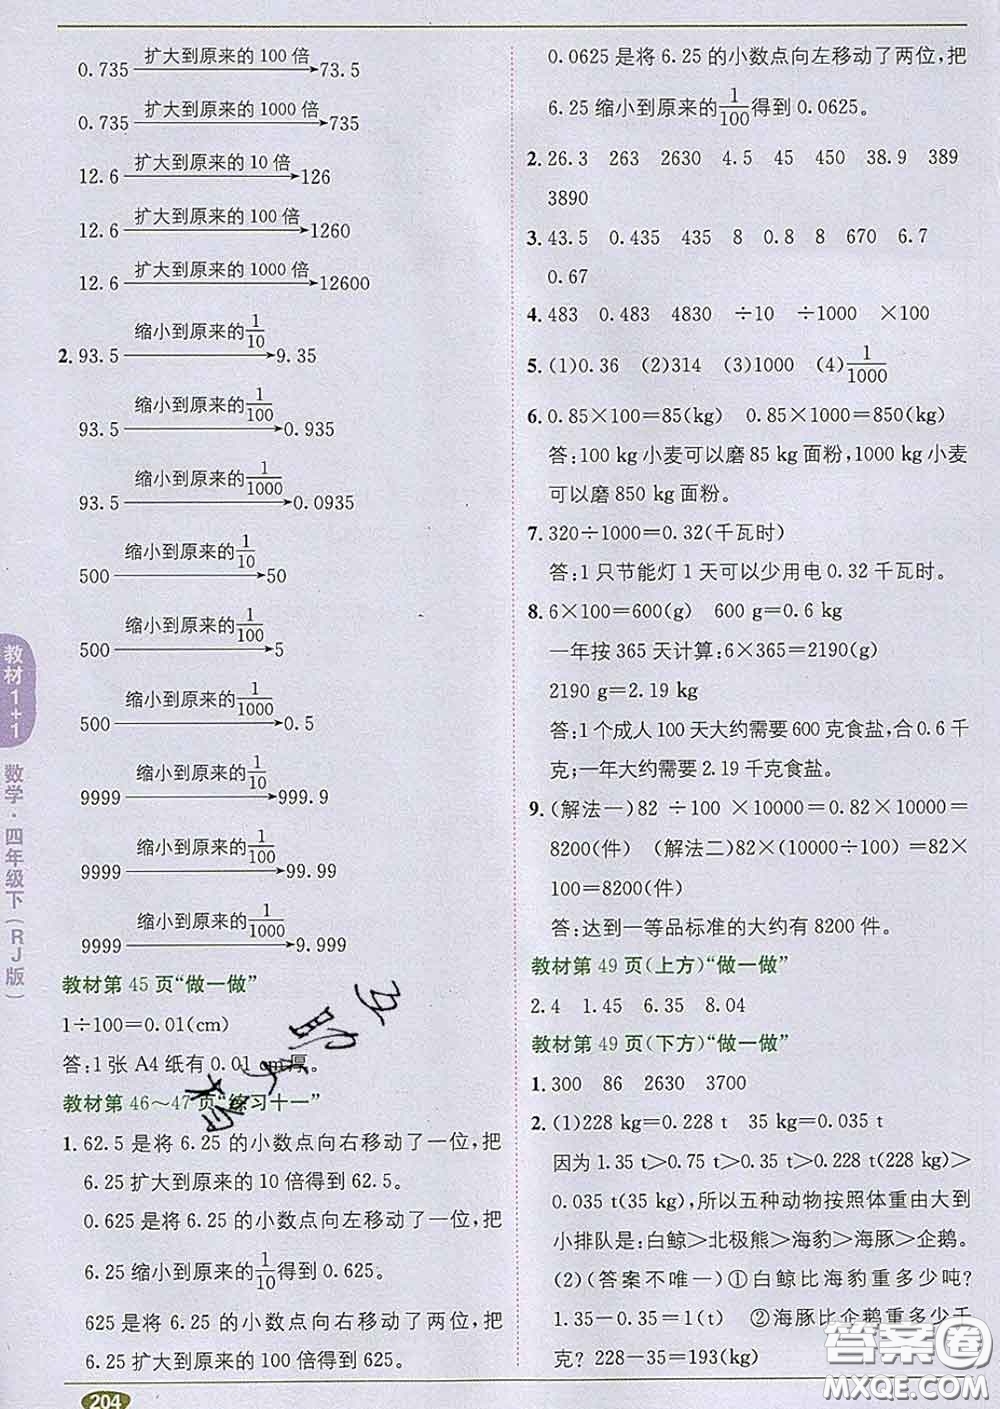 扩大到原来的 100 倍
0.735 73.5
扩大到原来的 1000 倍
0.735 735
扩大到原来的 10 倍
12.6 126
扩大到原来的 100 倍
12.6 1260
扩大到原来的 1000 倍
12.6 12600
缩小到原来的1/10
2. 93.5 9.35
缩小到原来的1/100
93.5 0.935
缩小到原来的1/1000
93.5 0.0935
缩小到原来的1/10
500 50
缩小到原来的1/100
500 5
缩小到原来的1/1000
500 0.5
缩小到原来的1/10
9999 999.9
缩小到原来的1/100
9999 99.99
缩小到原来的1/1000
9999 9.999
教材第 45 页“做一做”
1÷100=0.01(cm)
答:1 张 A4 纸有 0.01 cm 厚。
教材第 46～47 页“练习十一”
1. 62.5 是将 6.25 的小数点向右移动了一位,把
6.25 扩大到原来的 10 倍得到 62.5。
0.625 是将 6.25 的小数点向左移动了一位,把
6.25 缩小到原来的1/10得到 0.625。
625 是将 6.25 的小数点向右移动了两位,把
6.25 扩大到原来的 100 倍得到 625。
0.0625 是将 6.25 的小数点向左移动了两位,把
6.25 缩小到原来的1/100得到 0.0625。
2. 26.3 263 2630 4.5 45 450 38.9 389
3890
3. 43.5 0.435 435 8 0.8 8 670 6.7
0.67
4. 483 0.483 4830 ÷10 ÷1000 ×100
5. (1)0.36 (2)314 (3)1000 (4)1/1000
6. 0.85×100=85(kg) 0.85×1000=850(kg)
答:100 kg 小麦可以磨 85 kg 面粉,1000 kg 小麦
可以磨 850 kg 面粉。
7. 320÷1000=0.32(千瓦时)
答:1 只节能灯 1 天可以少用电 0.32 千瓦时。
8. 6×100=600(g) 600 g=0.6 kg
一年按 365 天计算:6×365=2190(g)
2190 g=2.19 kg
答:1 个成人 100 天大约需要 600 克食盐,合 0.6 千
克;一年大约需要 2.19 千克食盐。
9. (解法一)82 ÷100 ×10000=0.82×10000=
8200(件) (解法二)82×(10000÷100)=82×
100=8200(件)
答:达到一等品标准的大约有 8200 件。
教材第 49 页(上方)“做一做”
2.4 1.45 6.35 8.04
教材第 49 页(下方)“做一做”
1. 300 86 2630 3700
2. (1)228 kg=0.228 t 35 kg=0.035 t
因为 1.35 t>0.75 t>0.35 t>0.228 t(228 kg)>
0.035 t(35 kg),所以五种动物按照体重由大到
小排队是:白鲸>北极熊>海豹>海豚>企鹅。
(2)(答案不唯一)①白鲸比海豹重多少吨?
1.35-0.35=1(t) ②海豚比企鹅重多少千
克? 228-35=193(kg)
教材1+1
数学·四年级下(RJ版)
204
答案圈
MXQE.COM